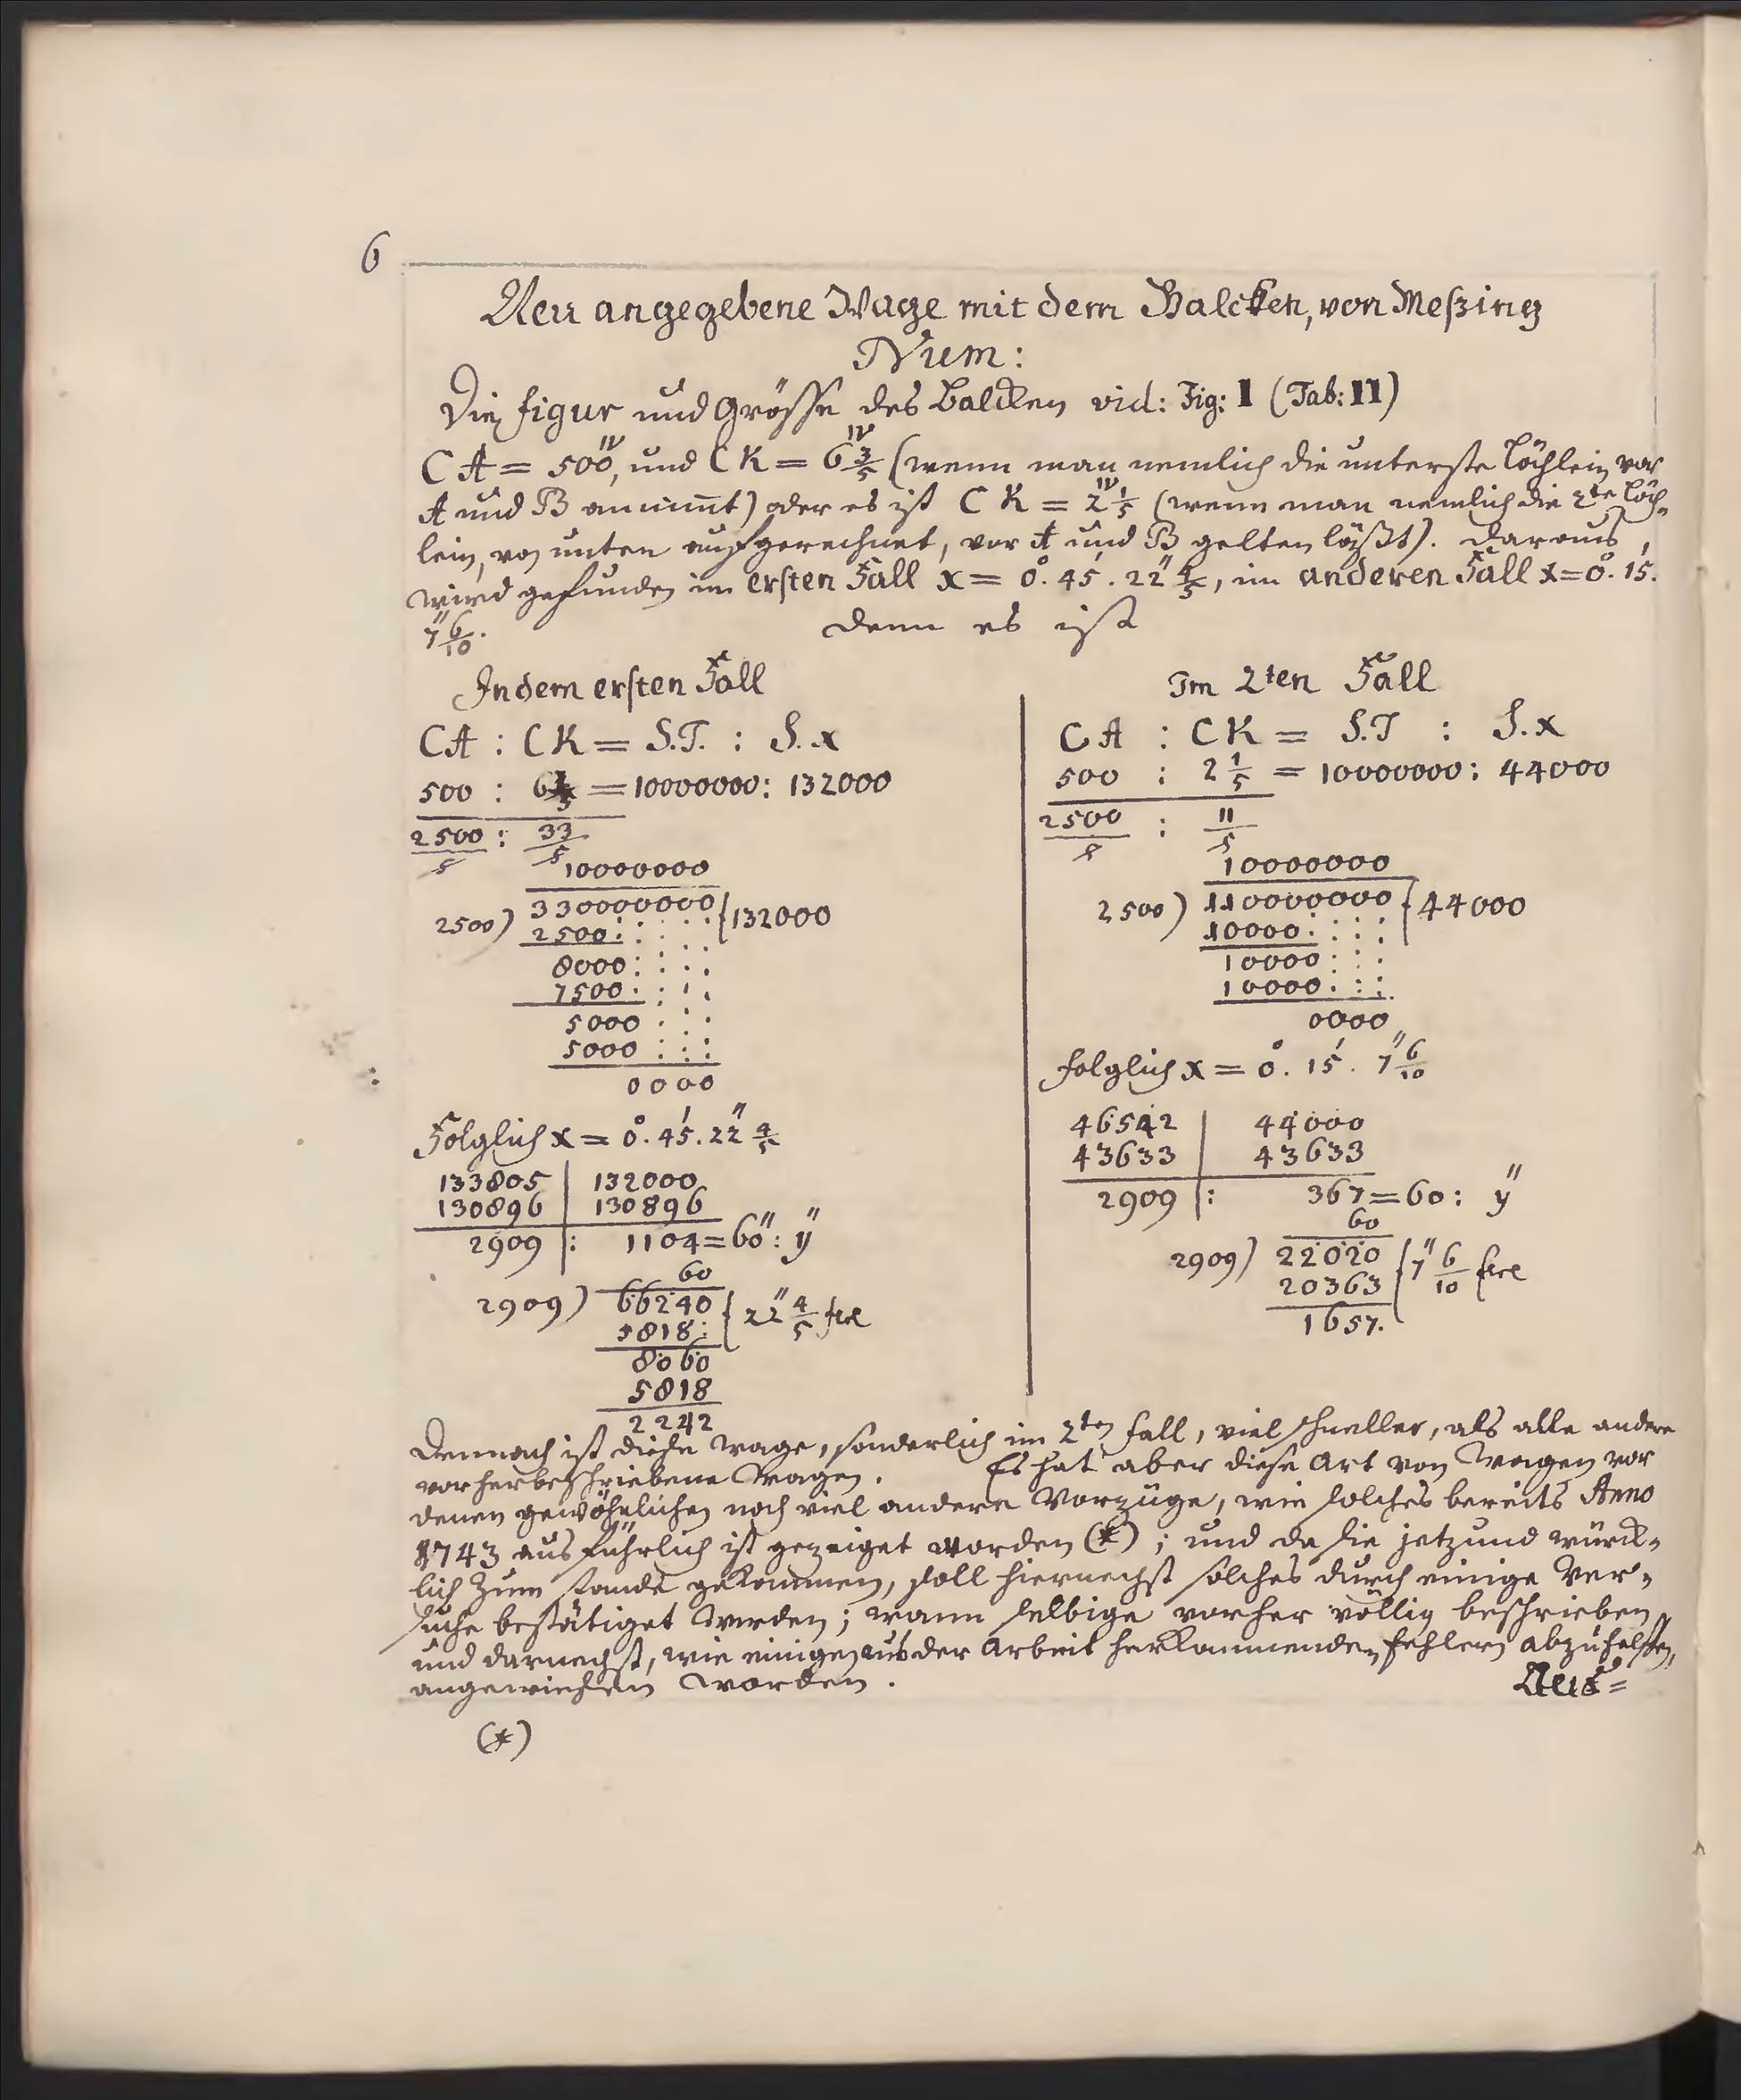 6
Neu angegebene Wage mit dem Balcken, von Meßing
Num:
Die figur und Grösse des Balcken vid: Fig: I (Tab: II)
CA = 500^IV, und CK = 6 3/5^IV (wenn man nemlich die unterste Löchlein vor
A und B annimt) oder es ist CK = 2 1/5^IV (wenn man nemlich die 2te Löch-
lein, von unten aufgerechnet, vor A und B gelten läßt). Daraus
wird gefunden im ersten Fall x = 0°. 45'. 22'' 4/5, im anderen Fall x = 0°. 15'.
7'' 6/10.
denn es ist
In dem ersten Fall
CA : CK = S.T. : S.x
500 : 6 3/5 = 10000000 : 132000
2500/5 : 33/5
10000000
2500) 330000000 { 132000
2500
8000
7500
5000
5000
0000
Folglich x = 0°. 45'. 22'' 4/5
133805 | 132000
130896 | 130896
2909 : 1104 = 60'' : y''
60
2909) 66240 { 22'' 4/5 fere
5818
8060
5818
2242
Im 2ten Fall
CA : CK = S.T : S.x
500 : 2 1/5 = 10000000 : 44000
2500/5 : 11/5
10000000
2500) 110000000 { 44000
10000
10000
10000
0000
folglich x = 0°. 15'. 7'' 6/10
46542 | 44000
43633 | 43633
2909 : 367 = 60 : y''
60
2909) 22020 { 7'' 6/10 fere
20363
1657.
Demnach ist diese Wage, sonderlich im 2ten fall, viel schneller, als alle andere
vorherbeschriebene Wagen. Es hat aber diese Art von Wagen vor
denen gewöhnlichen noch viel andere Vorzüge, wie solches bereits Anno
1743 ausführlich ist gezeiget worden (*); und da sie jetzund würck-
lich zum stande gekommen, soll hiernechst solches durch einige Ver-
suche bestätiget werden; wann selbige vorher völlig beschrieben
und darnechst, wie einigen aus der Arbeit herkommenden fehlern abzuhelffen,
angewiesen worden.
Neu=
(*)